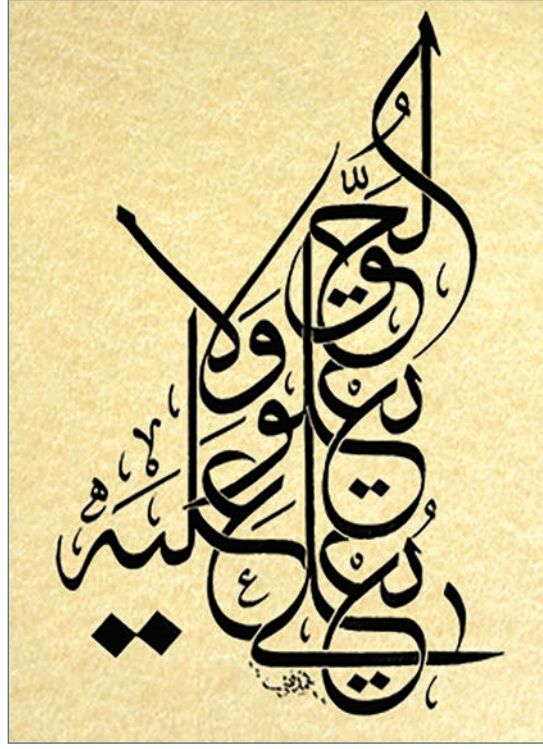 الحَقُّ
يعلو
ولا
يُعلى
عَليَه